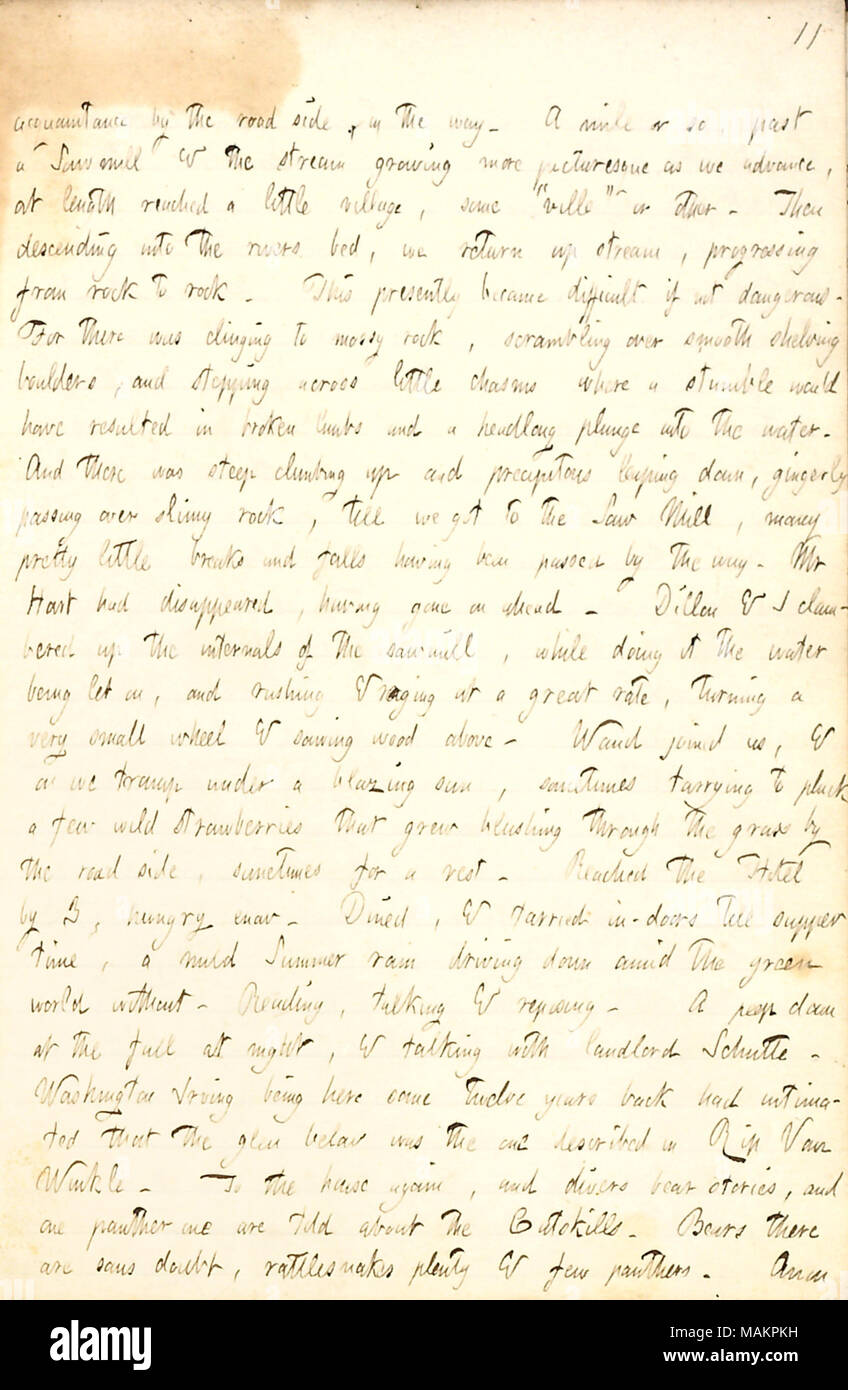 11
acquaintance by the road side, on the way. A mile or so past
a Sawmill & the stream growing more picturesque as we advance,
at length reached a little village, some "ville" or other. Then
descending into the rivers bed, we return up stream, progressing
from rock to rock. This presently became difficult if not dangerous.
For there was clinging to mossy rock, scrambling over smooth shelving
boulders, and stepping across little chasms where a stumble would
have resulted in broken limbs and a headlong plunge into the water.
And there was steep climbing up and precipitous leaping down, gingerly
passing over slimy rock, till we got to the Saw Mill, many
pretty little breaks and falls having been passed by the way. Mr
Hart had disappeared, having gone on ahead. Dillon & I clam-
bered up the internals of the sawmill, while doing it the water
being let on, and rushing & raging at a great rate, turning a
very small wheel & sawing wood above. Waud joined us, &
on we tramp under a blazing sun, sometimes tarrying to pluck
a few wild strawberries that grew blushing through the grass by
the road side, sometimes for a rest. Reached the Hotel
by 3, hungry enow. Dined, & tarried in-doors till supper
time, a mild Summer rain driving down amid the green
world without. Reading, talking & reposing. A peep down
at the fall at night, & talking with landlord Schutte.
Washington Irving being here some twelve years back had intima-
ted that the glen below was the one described in Rip Van
Winkle. To the house again, and divers bear stories, and
one panther one are told about the Catskills. Bears there
are sans doubt, rattlesnakes plenty & few panthers. Anon
alamy
Image ID: MAKPKH
www.alamy.com